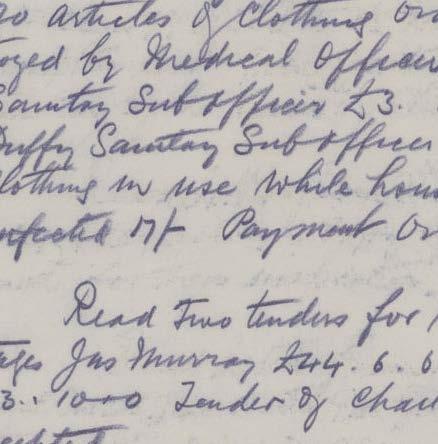 20 articles of Clothing Or
oyed by Medical Officer
Sanitay Sub officer £3.
Duffy Sanitary Sub officer
Clothing in use while hou
nfected 17/- Payment Or
Read Two tenders for
ages Jas Murray £44.6.6
3.. 10.0 Tender of Char
ccepted